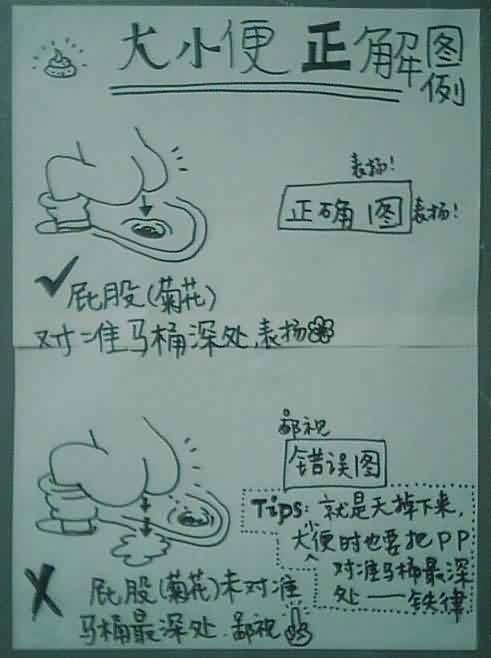 大小便正解图例
表扬!
正确图 表扬!
屁股(菊花)
对准马桶深处,表扬
鄙视
错误图
Tips: 就是天掉下来,
大小便时也要把PP
对准马桶最深
处——铁律
屁股(菊花)未对准
马桶最深处.鄙视